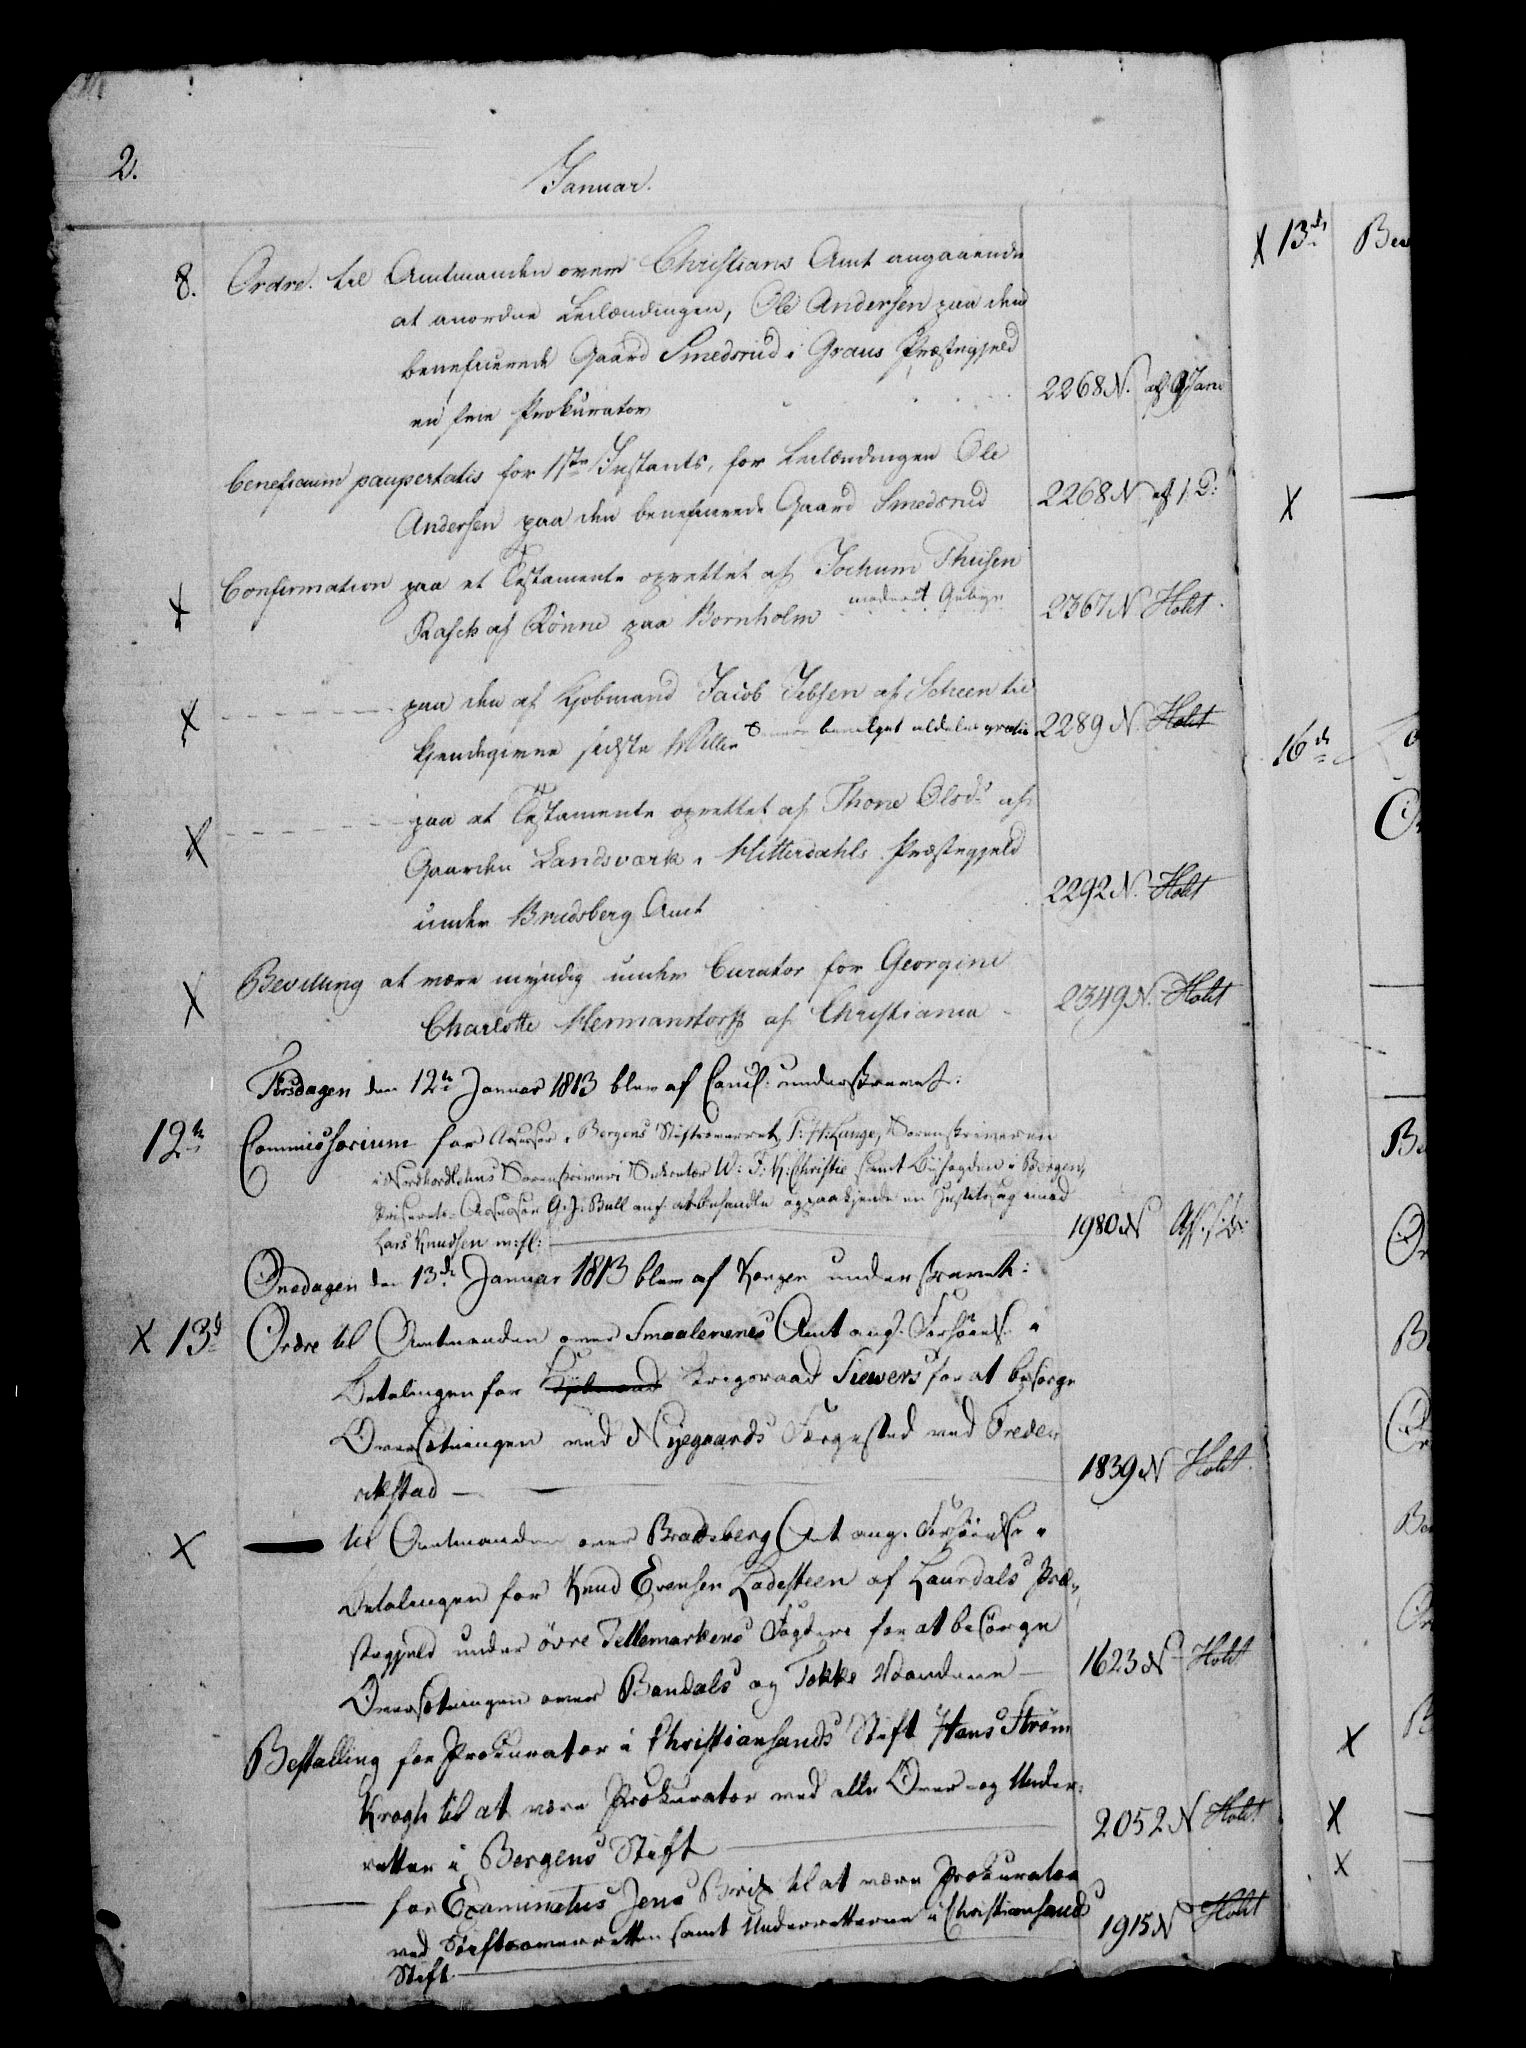 2.
Januar.
8. Ordre til Amtmanden over Christians Amt angaaende
at anordne Leilændingen, Ole Andersen paa den
beneficerede Gaard Smedsrud i Graus Præstegjeld
en frie Prokurator 2268 N. af Jan
beneficium paupertatis for 1ste Instants, for Leilændingen Ole
Andersen paa den beneficerede Gaard Smedsrud 2268 N af 1. D:
X Confirmation paa et Testamente oprettet af Jochum Thiesen
Rasch af Rönne paa Bornholm moderat Gebyr 2367 N Holst.
X - - - paa den af Kjobmand Jacob Jebsen af Scheen til
kjendegivne sidste Villie bevilget aldeles gratis 2289 N. Holst
X - - - paa et Testamente oprettet af Thone Olsd. af
Gaarden Landsværk i Hitterdahls Præstegjeld
under Bradsberg Amt 2292 N. Holst
X Bevilling at være myndig under Curator for Georgine
Charlotte Hermanstorff af Christiania - 2349 N. Holst
Tirsdagen den 12te Januar 1813 blev af Canc: underskrevet:
12te Commissorium for Assessor i Bergens Stiftsoverret, T: H: Lange, Sorenskriveren
i Nordhordlehns Sorenskriveri Sekretær W: F: K: Christie samt Byfogden i Bergen,
Assessor G. J: Bull ang: at behandle og paakjende en Justitssag imod
Lars Knudsen m: fl: 1980 N Aff.
Onsdagen den 13de Januar 1813 blev af Kongen underskrevet:
X 13d Ordre til Amtmanden over Smaalenenes Amt ang. Forhöielse i
Betalingen for Kjøbmand Krigsraad Siewers for at besörge
Oversætningen ved Nyegaards Færgested ved Freder
ikstad - 1839 N Holst.
X — til Amtmanden over Bradsberg Amt ang. Forhöielse i
Betalingen for Knud Evensen Ladesteen af Laurdals Præ-
stegjeld under övre Tellemarkens Fogderi for at besörge
Oversætningen over Bandals og Tokke Vandene - 1623 N Holst
Bestalling for Prokurator i Christiansands Stift Hans Ström
Krogh til at være Prokurator ved alle Over- og Under-
retter i Bergens Stift 2052 N Holst
— for Examinatus Jens til at være Prokurator
ved Stiftsoverretten samt Underretterne i Christiansands
Stift 1915 N Holst
X 13de
X
16de
X
X
X